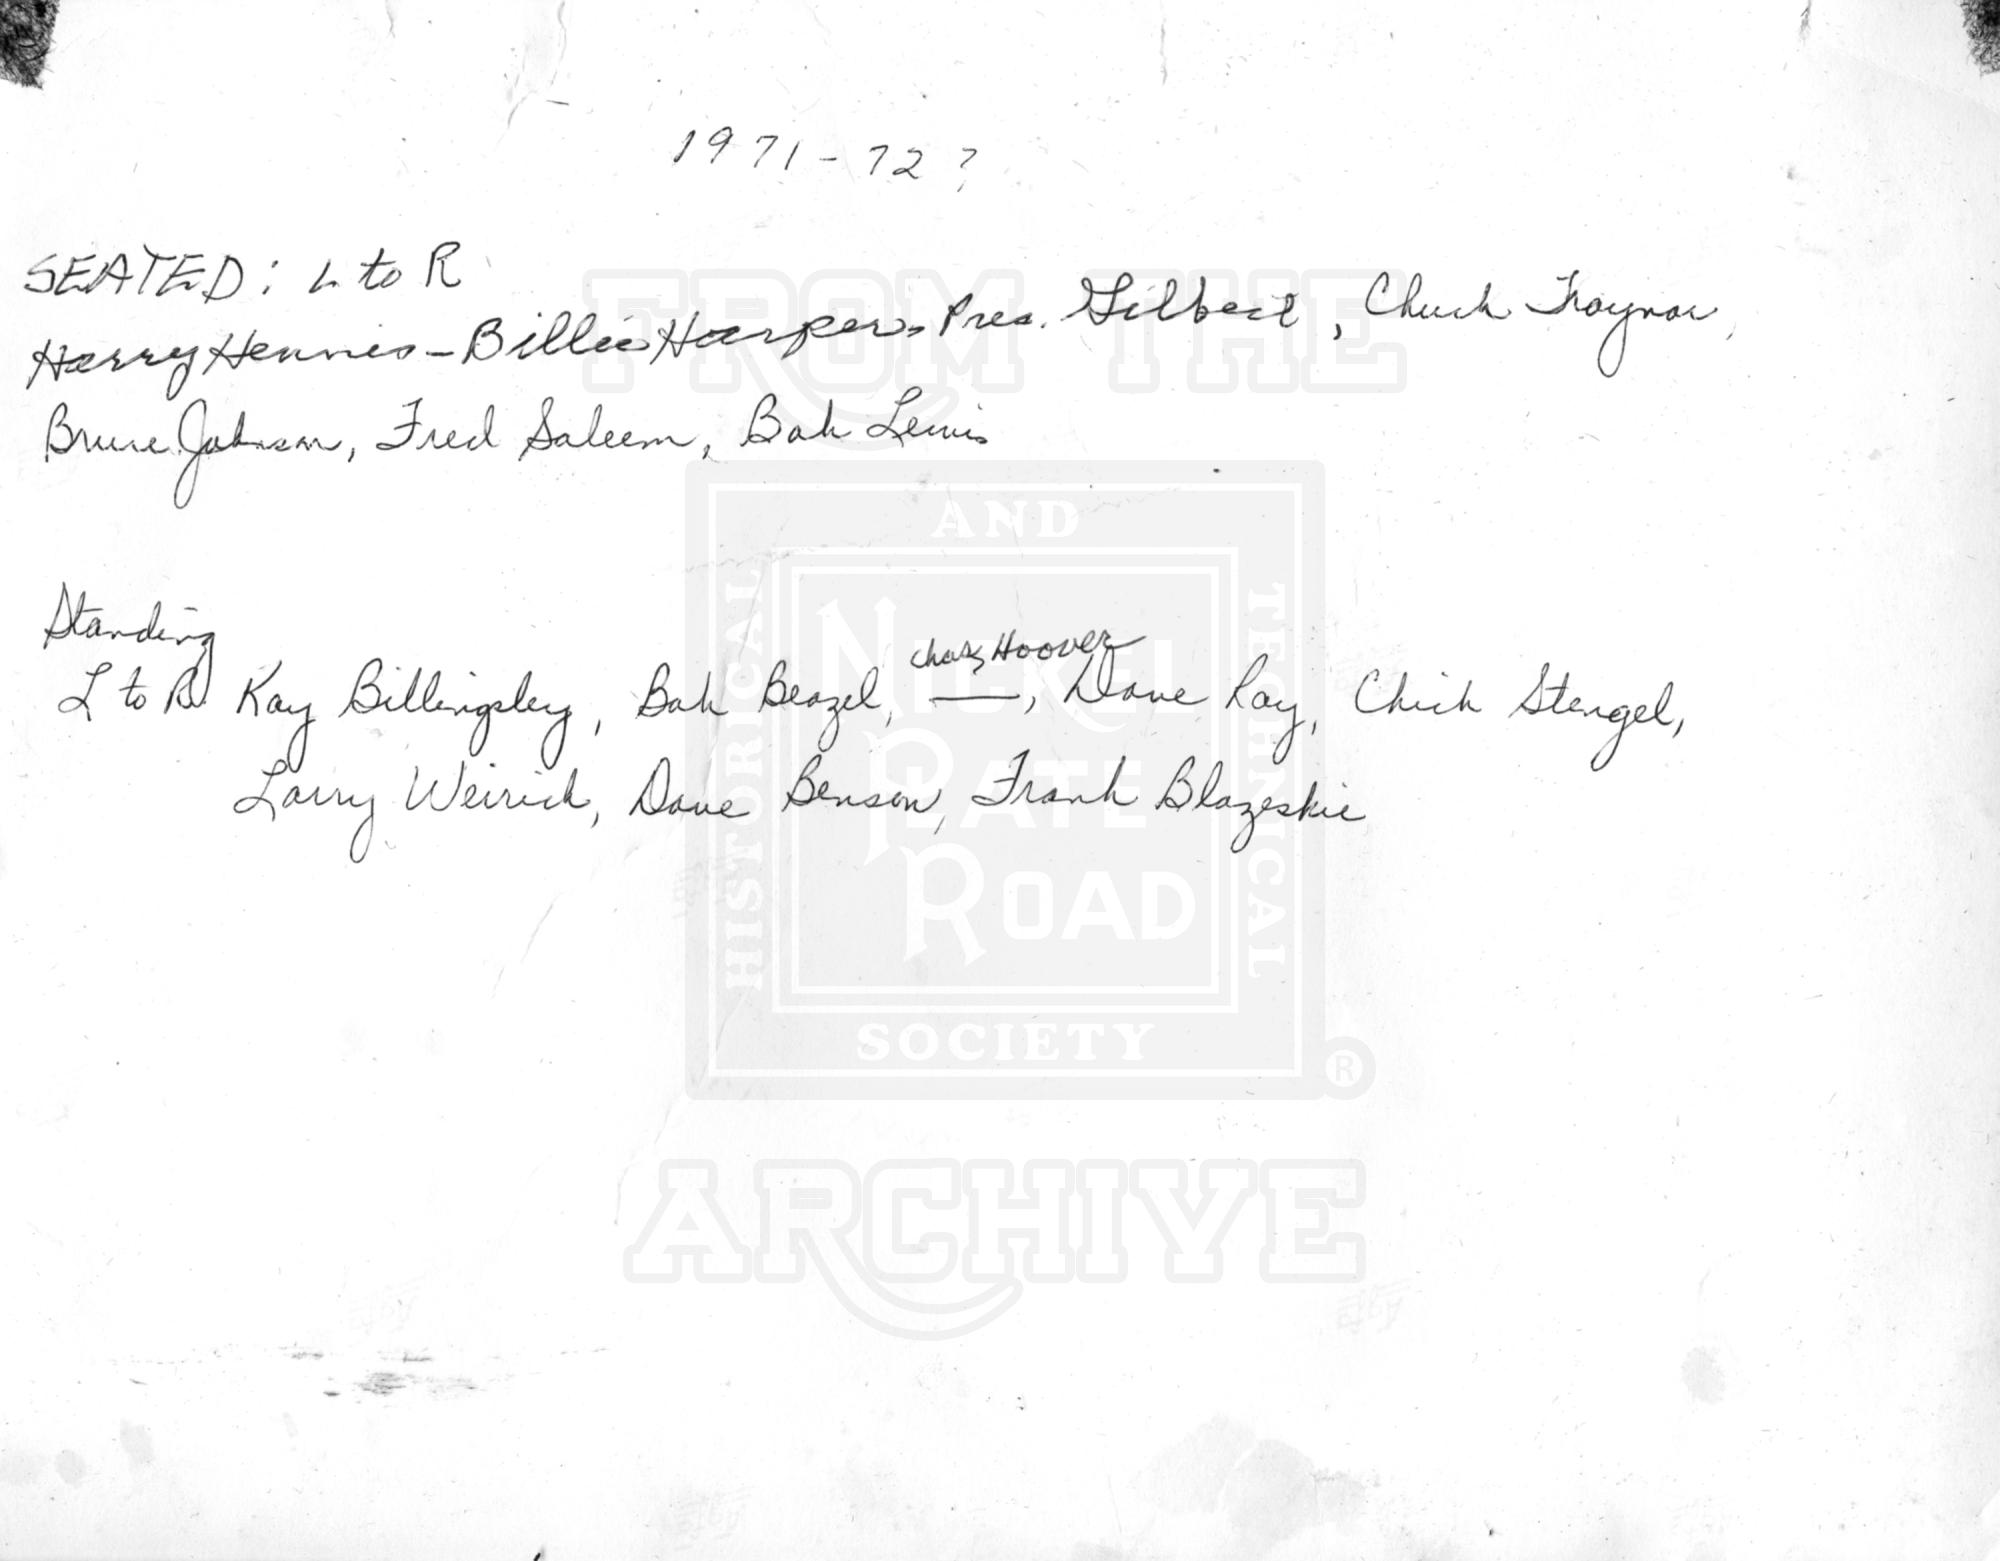 1971-72?
SEATED: L to R
Harry Hennis - Billie Harper, Pres. Gilbert, Chuck Traynor,
Bruce Johnson, Fred Saleem, Bob Lewis
Standing
Chas Hoover
L to R Kay Billingsley, Bob Beazel, ——, Dave Ray, Chick Stengel,
Larry Weirich, Dave Benson, Frank Blazeskie
FROM THE
AND
HISTORICAL
TECHNICAL
NICKEL
PLATE
ROAD
SOCIETY
®
ARCHIVE